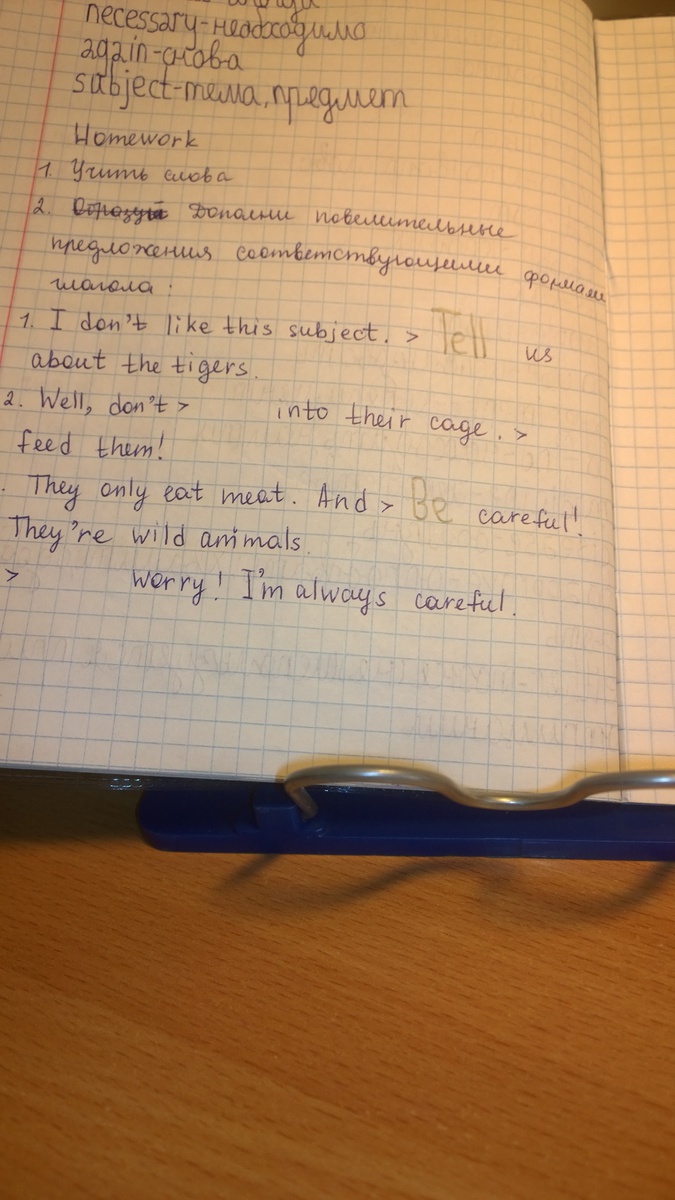 necessary-необходимо
again-снова
subject-тема, предмет
Homework
1. Учить слова
2. Дополни повелительные
предложения соответствующими формами
глагола:
1. I don't like this subject. > Tell us
about the tigers.
2. Well, don't > into their cage. >
feed them!
. They only eat meat. And > Be careful!
They're wild animals.
> worry! I'm always careful.